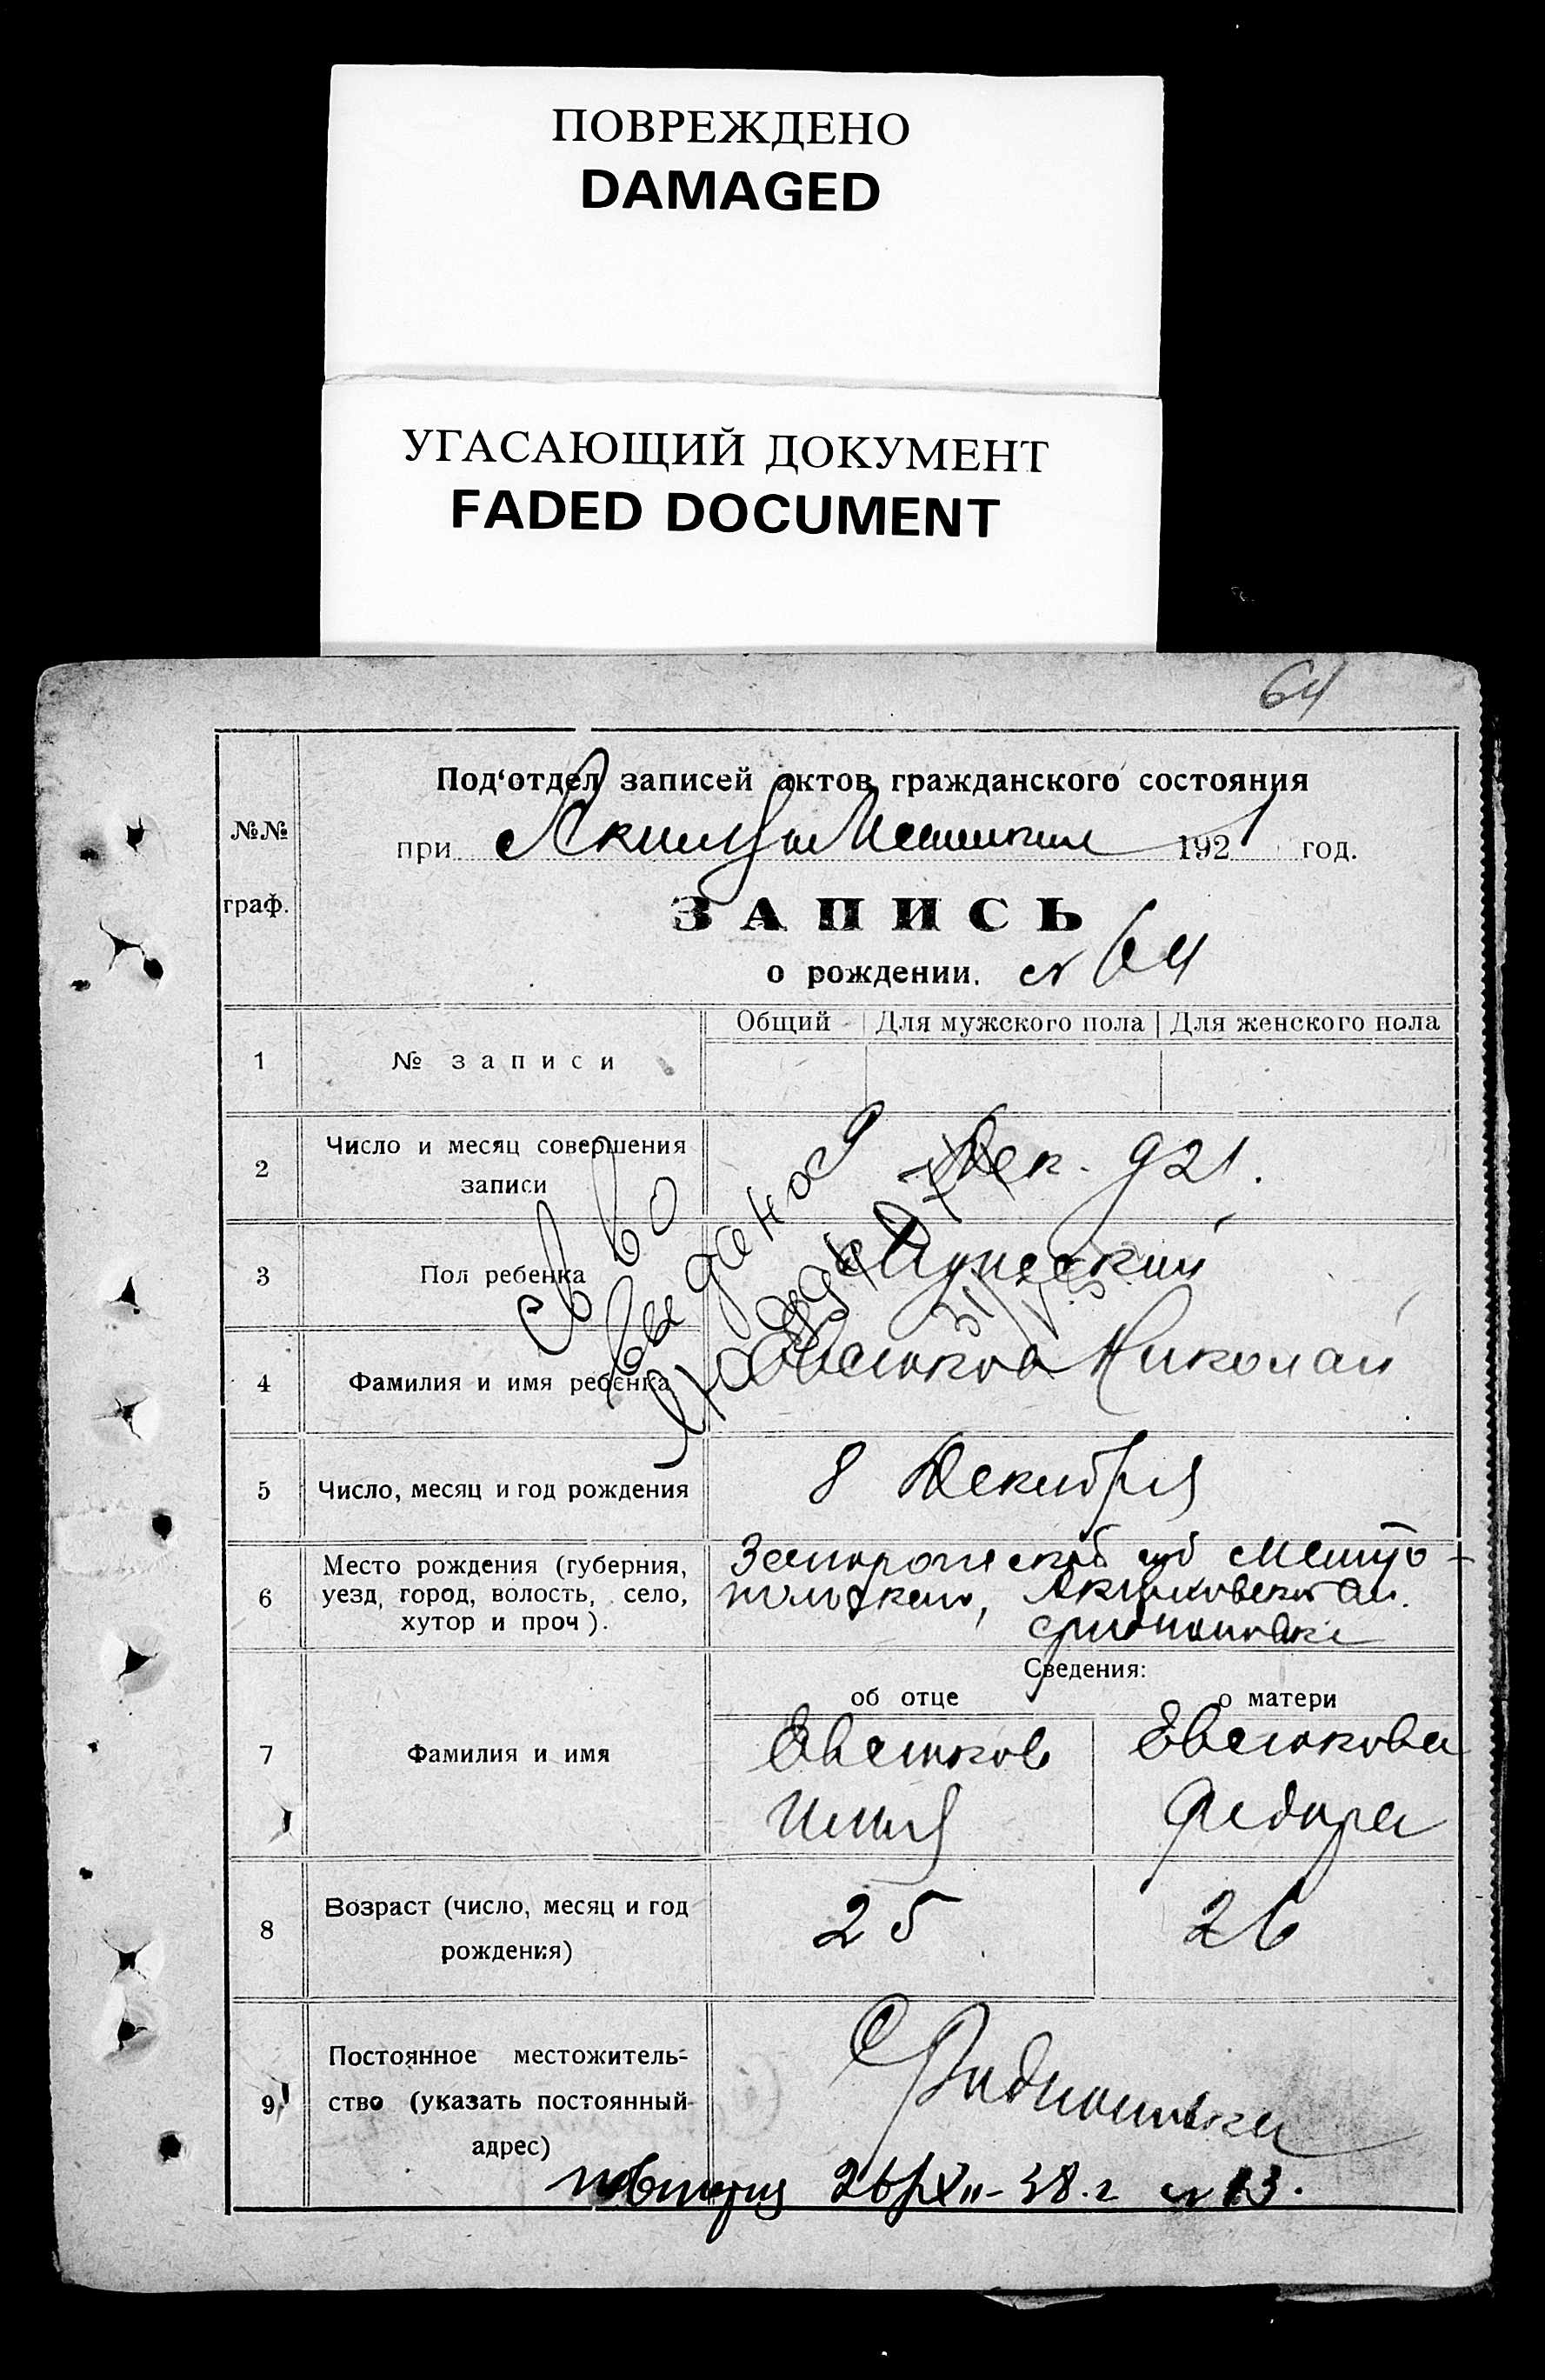 ПОВРЕЖДЕНО
DAMAGED
УГАСАЮЩИЙ ДОКУМЕНТ
FADED DOCUMENT
64
Под‘отдел записей актов гражданского состояния
№№
при 1921 год.
граф.
ЗАПИСЬ
о рождении. № 64
Общий Для мужского пола Для женского пола
1 № записи
2 Число и месяц совершения записи
Дек. 921.
Св во
выдано
3 Пол ребенка
Мужеский
4 Фамилия и имя ребенка
Евсюков Николай
5 Число, месяц и год рождения
8 Декабря
6 Место рождения (губерния,
уезд, город, волость, село,
хутор и проч).
Запорожской губ Мелито-
польского, Акимовской
Родионовка
Сведения:
об отце о матери
7 Фамилия и имя
Евсюков Евсюкова
Илья Федора
8 Возраст (число, месяц и год
рождения)
25 26
9 Постоянное местожитель-
ство (указать постоянный
адрес)
С Родионовка
повторна 26/XII-38.г № 13.